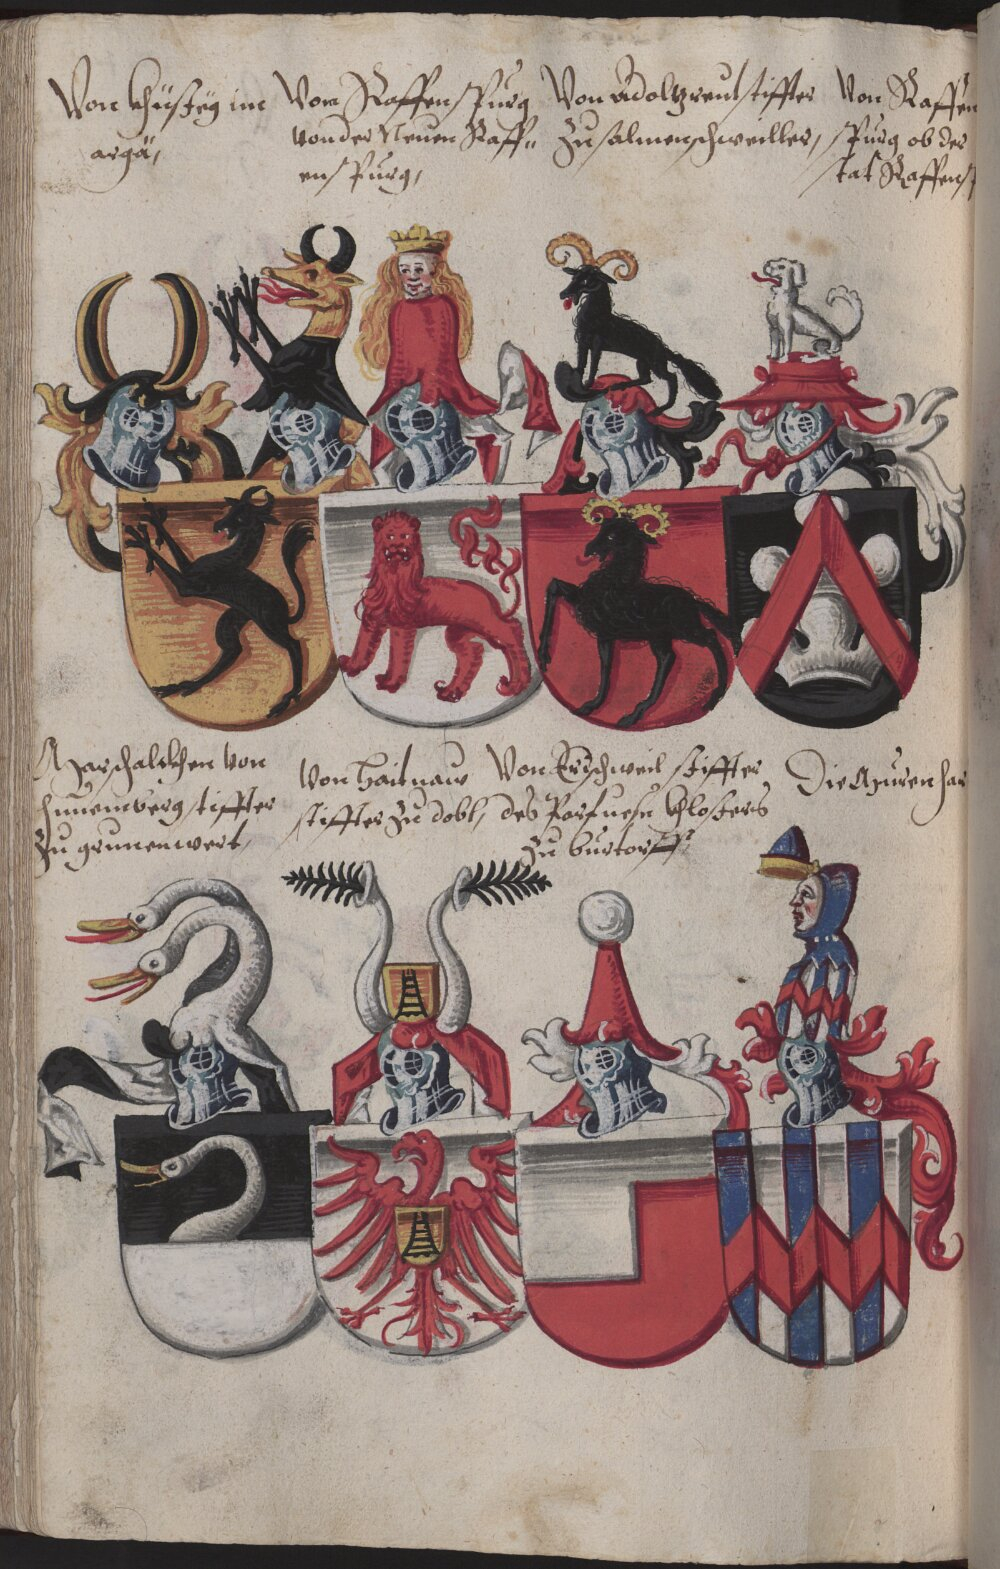 Von Khüsseg im
argä,
Vom Raffenspurg
von der Neuen Raff„
enspurg,
Von Adoltzreut stiffter
zu salmenschweiller,
Von Raffen
spurg ob der
stat Raffensp
Marschalckhen von
hünenwerg stiffter
zu grunenwert,
Von Haitnaw
stiffter zu dobl,
Von Erischweil stiffter
des Parfuesn Closters
zu burtorff
Die Murenhar